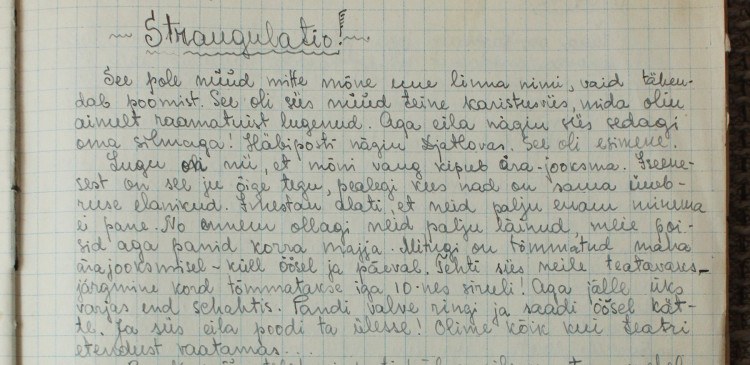 Strangulatio!
See pole nüüd mitte mõne uue linna nimi, vaid tähen-
dab poomist. See oli siis nüüd teine karistusviis, mida olin
ainult raamatuist lugenud. Aga eila nägin siis sedagi
oma silmaga! Häbiposti nägin Djatlovas. See oli esimene.
Lugu oli nii, et mõni vang kipub ära-jooksma. Iseene-
sest on see ju õige tegu, pealegi kus nad on sama ümb-
ruse elanikud. Imestan alati, et neid palju enam minema
ei pane. No ennem ollagi neid palju läinud, meie poi-
sid aga panid korra majja. Mitugi on tõmmatud maha
ärajooksmisel – küll öösel ja päeval. Tehti siis neile teatavaks –
järgmine kord tõmmatakse iga 10-nes siruli! Aga jälle üks
varjas end schahtis. Pandi valve ringi ja saadi öösel kät-
te. Ja siis eila poodi ta ülesse! Olime kõik kui teatri
etendust vaatamas...